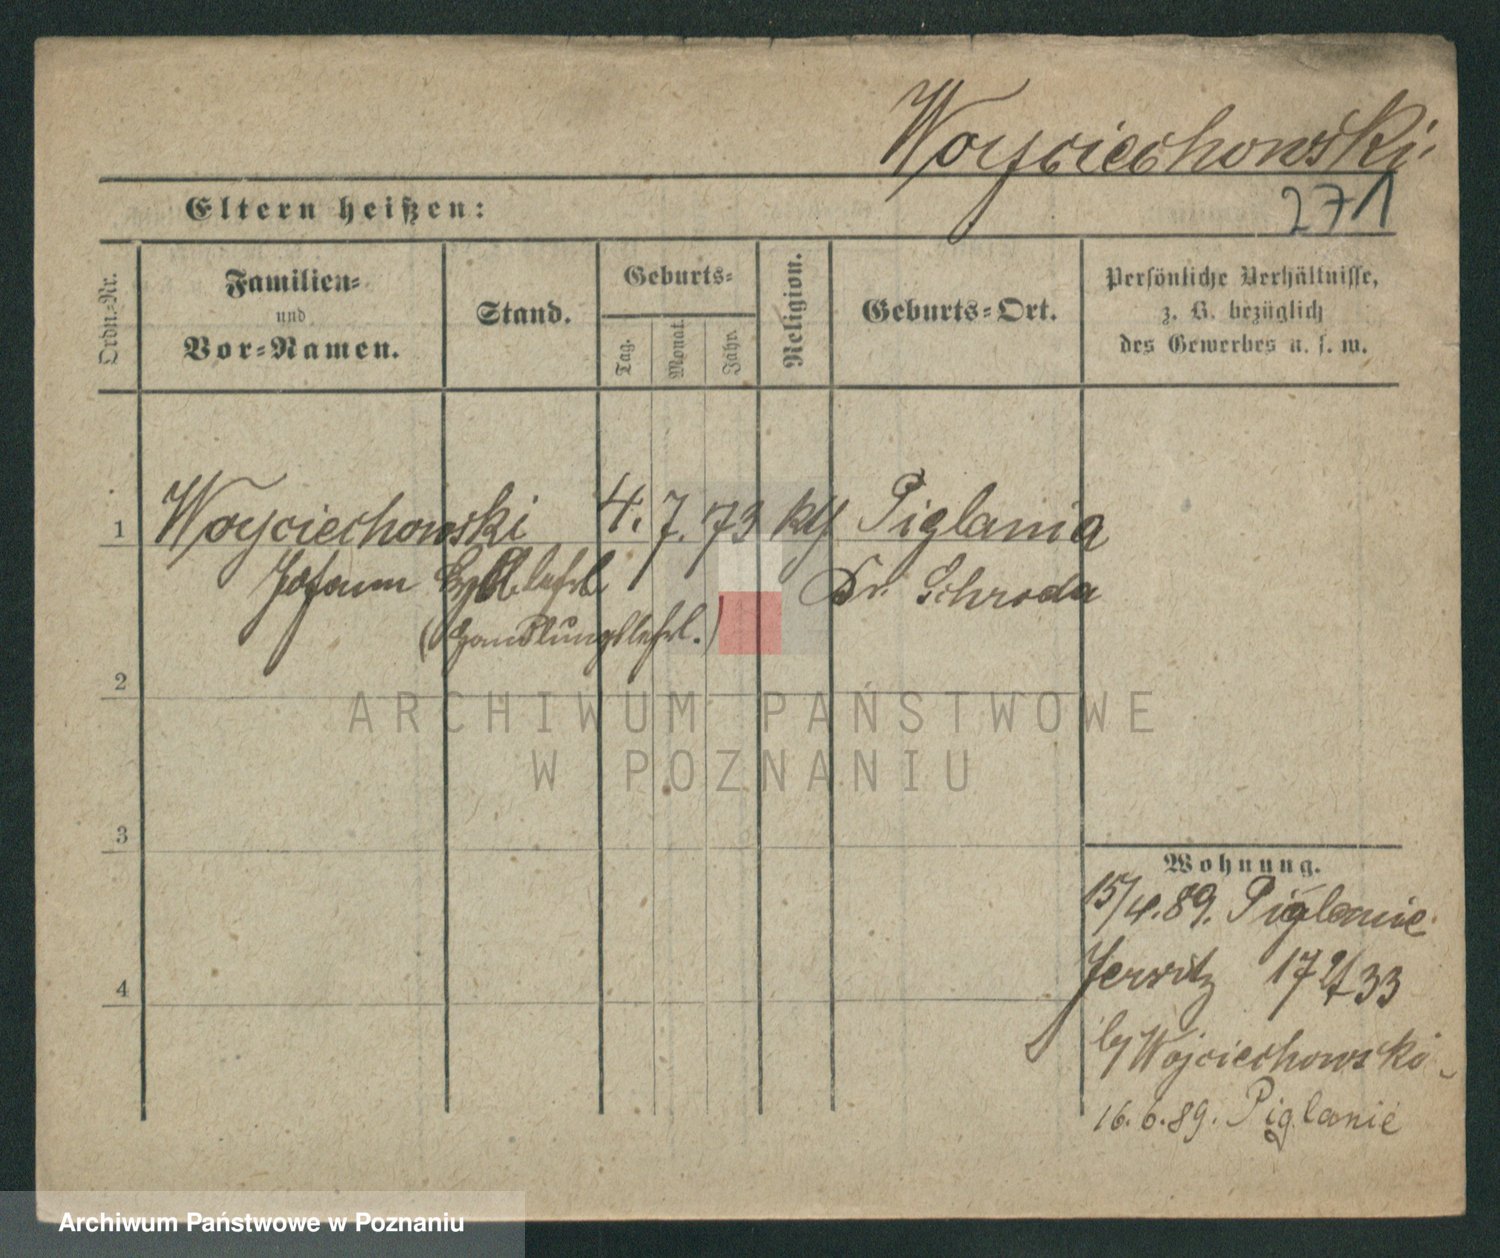 Woyciechowski
Eltern heißen:
271
Ordn.-Nr.
Familien-
und
Vor-Namen.
Stand.
Geburts-
Tag.
Monat.
Jahr.
Religion.
Geburts-Ort.
Persönliche Verhältnisse,
z. B. bezüglich
des Gewerbes u. s. w.
1
Woyciechowski 4. 7. 73 kth Piglania
Johann
Kr. Schroda
(Handlungslehrl.)
2
ARCHIWUM PAŃSTWOWE
W POZNANIU
3
Wohnung.
15/4.89. Piglanie
4
Jersitz
b/ Wojciechowski
16.6.89. Piglanie
Archiwum Państwowe w Poznaniu